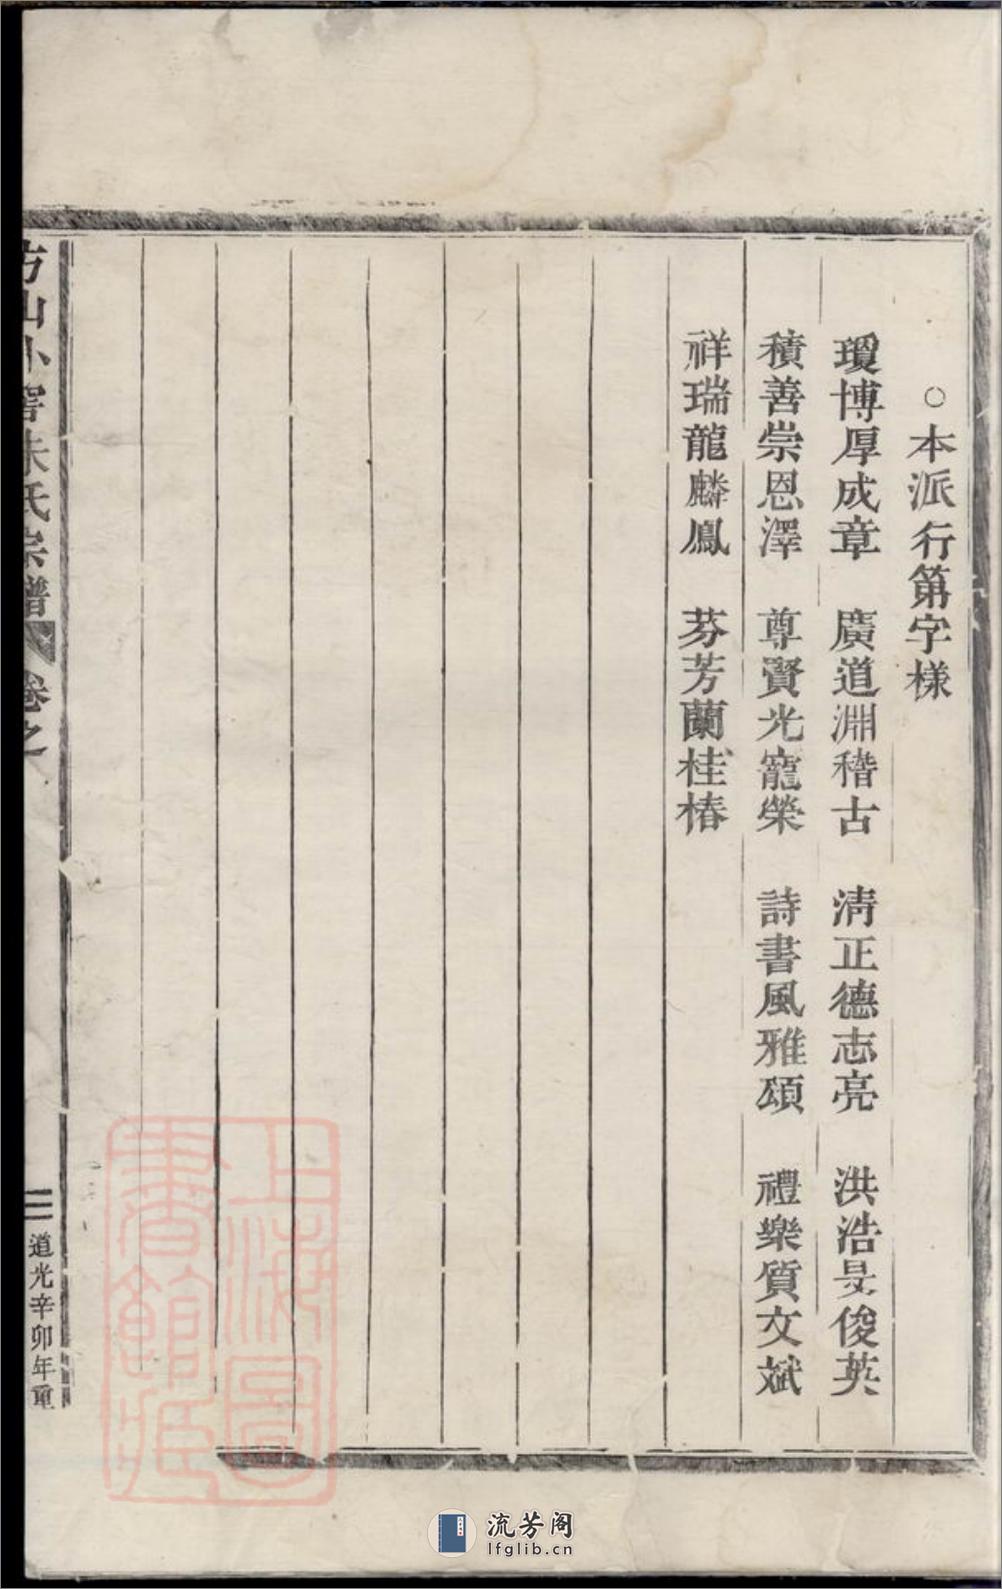 ○本派行第字樣
瓊博厚成章 廣道淵稽古 清正德志亮 洪浩旻俊英
積善崇恩澤 尊賢光寵榮 詩書風雅頌 禮樂質文斌
祥瑞龍麟鳳 芬芳蘭桂椿
方山小窖朱氏宗譜 卷之
二 道光辛卯年重
上海圖書館藏
流芳阁
lfglib.cn